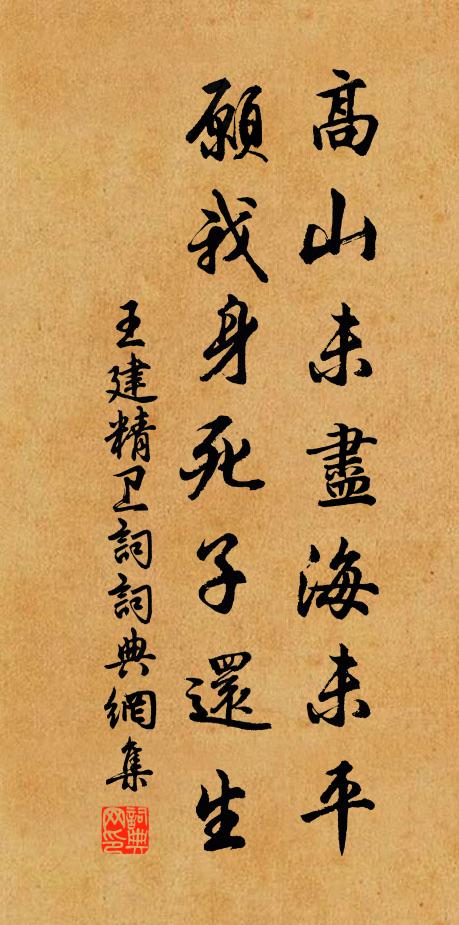 高山未盡海未平
願我身死子還生
王建精卫詞詞典網集
詞典网印